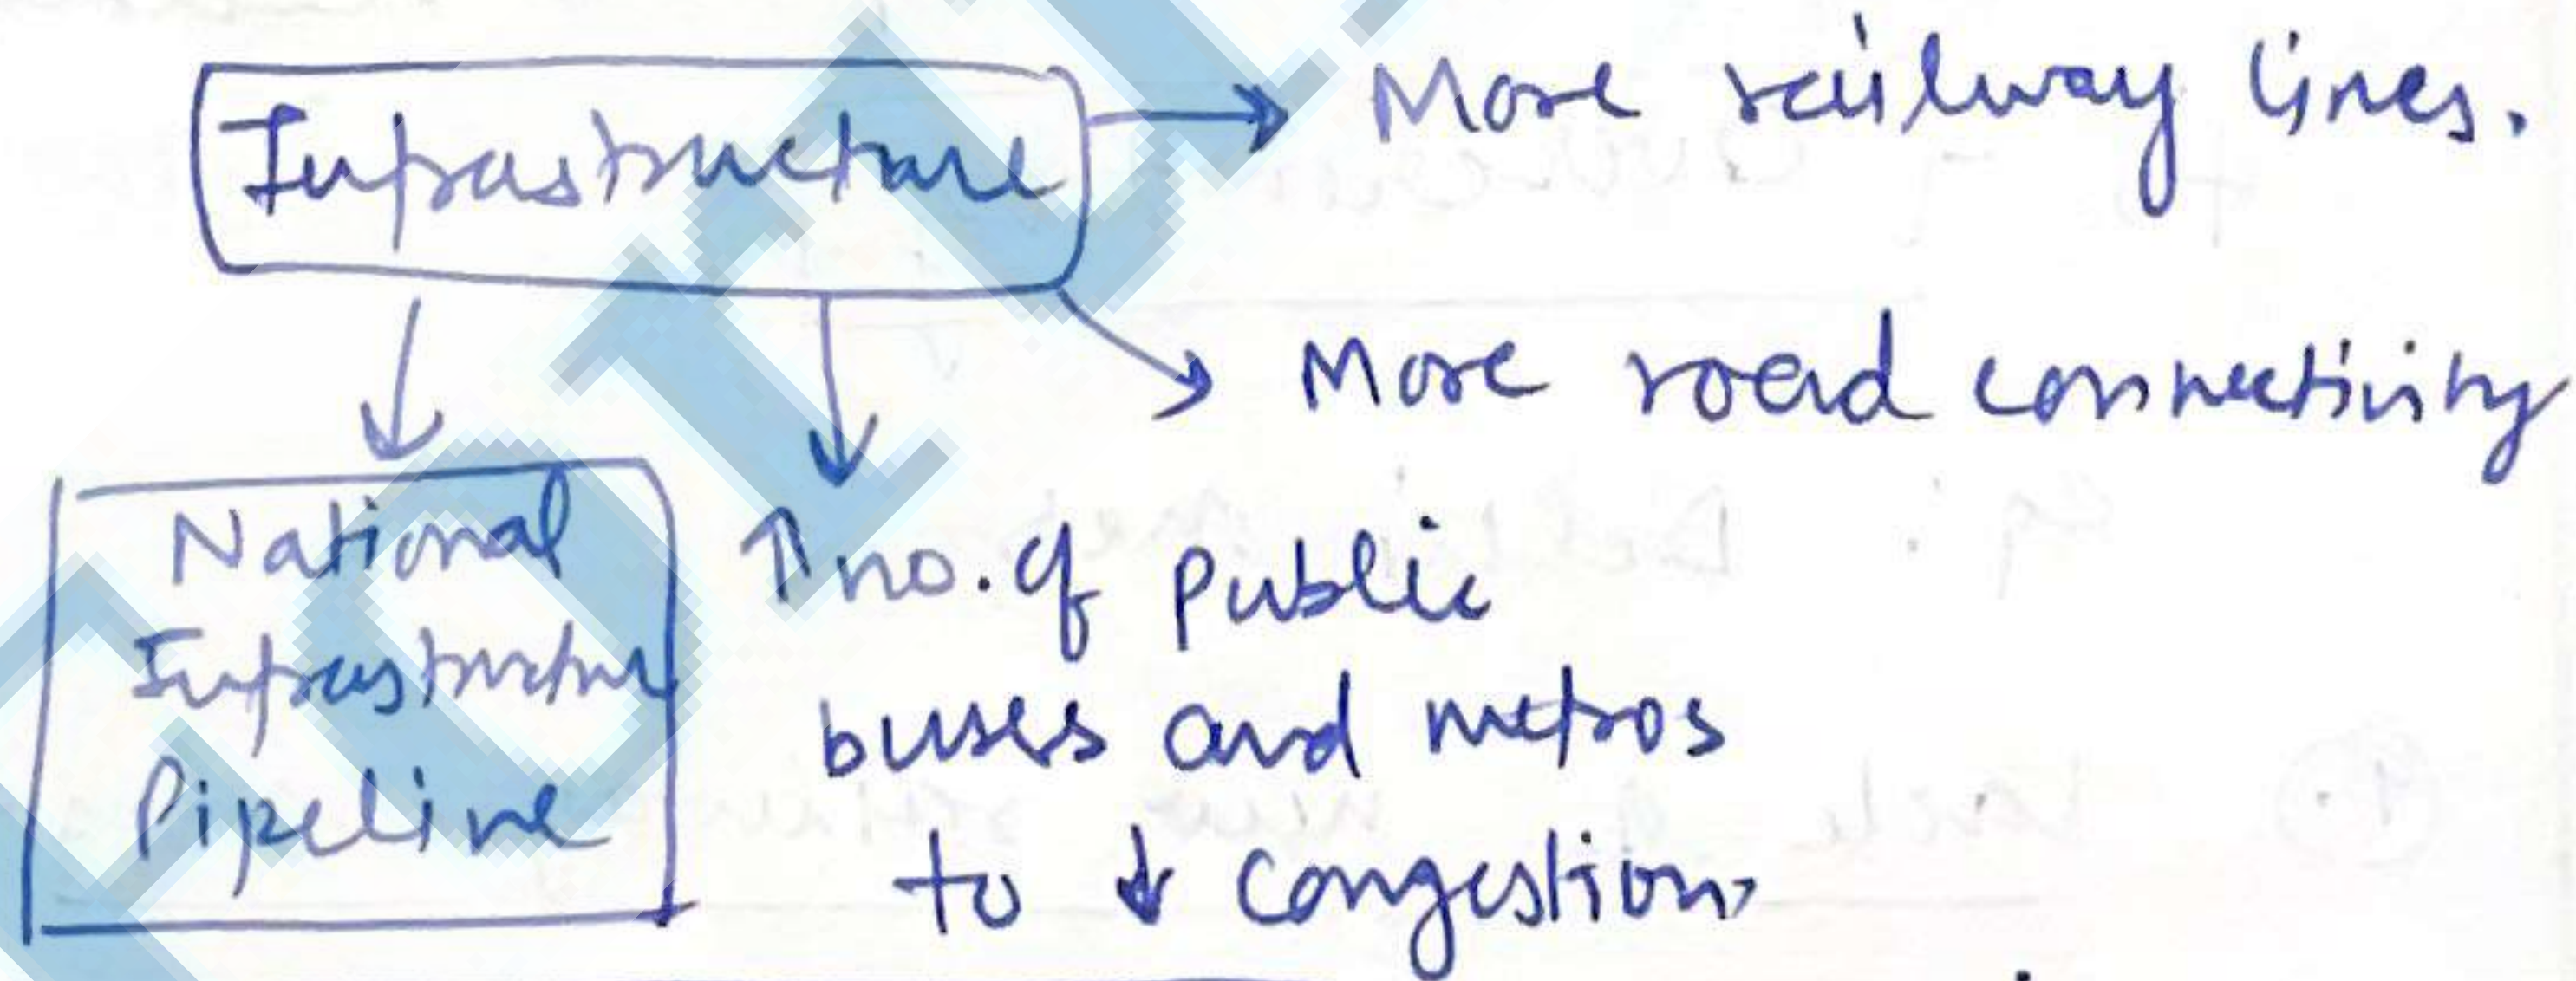 Infrastructure
More railway lines.
More road connectivity
National
Infrastructure
Pipeline
↑ no. of public
buses and metros
to ↓ congestion